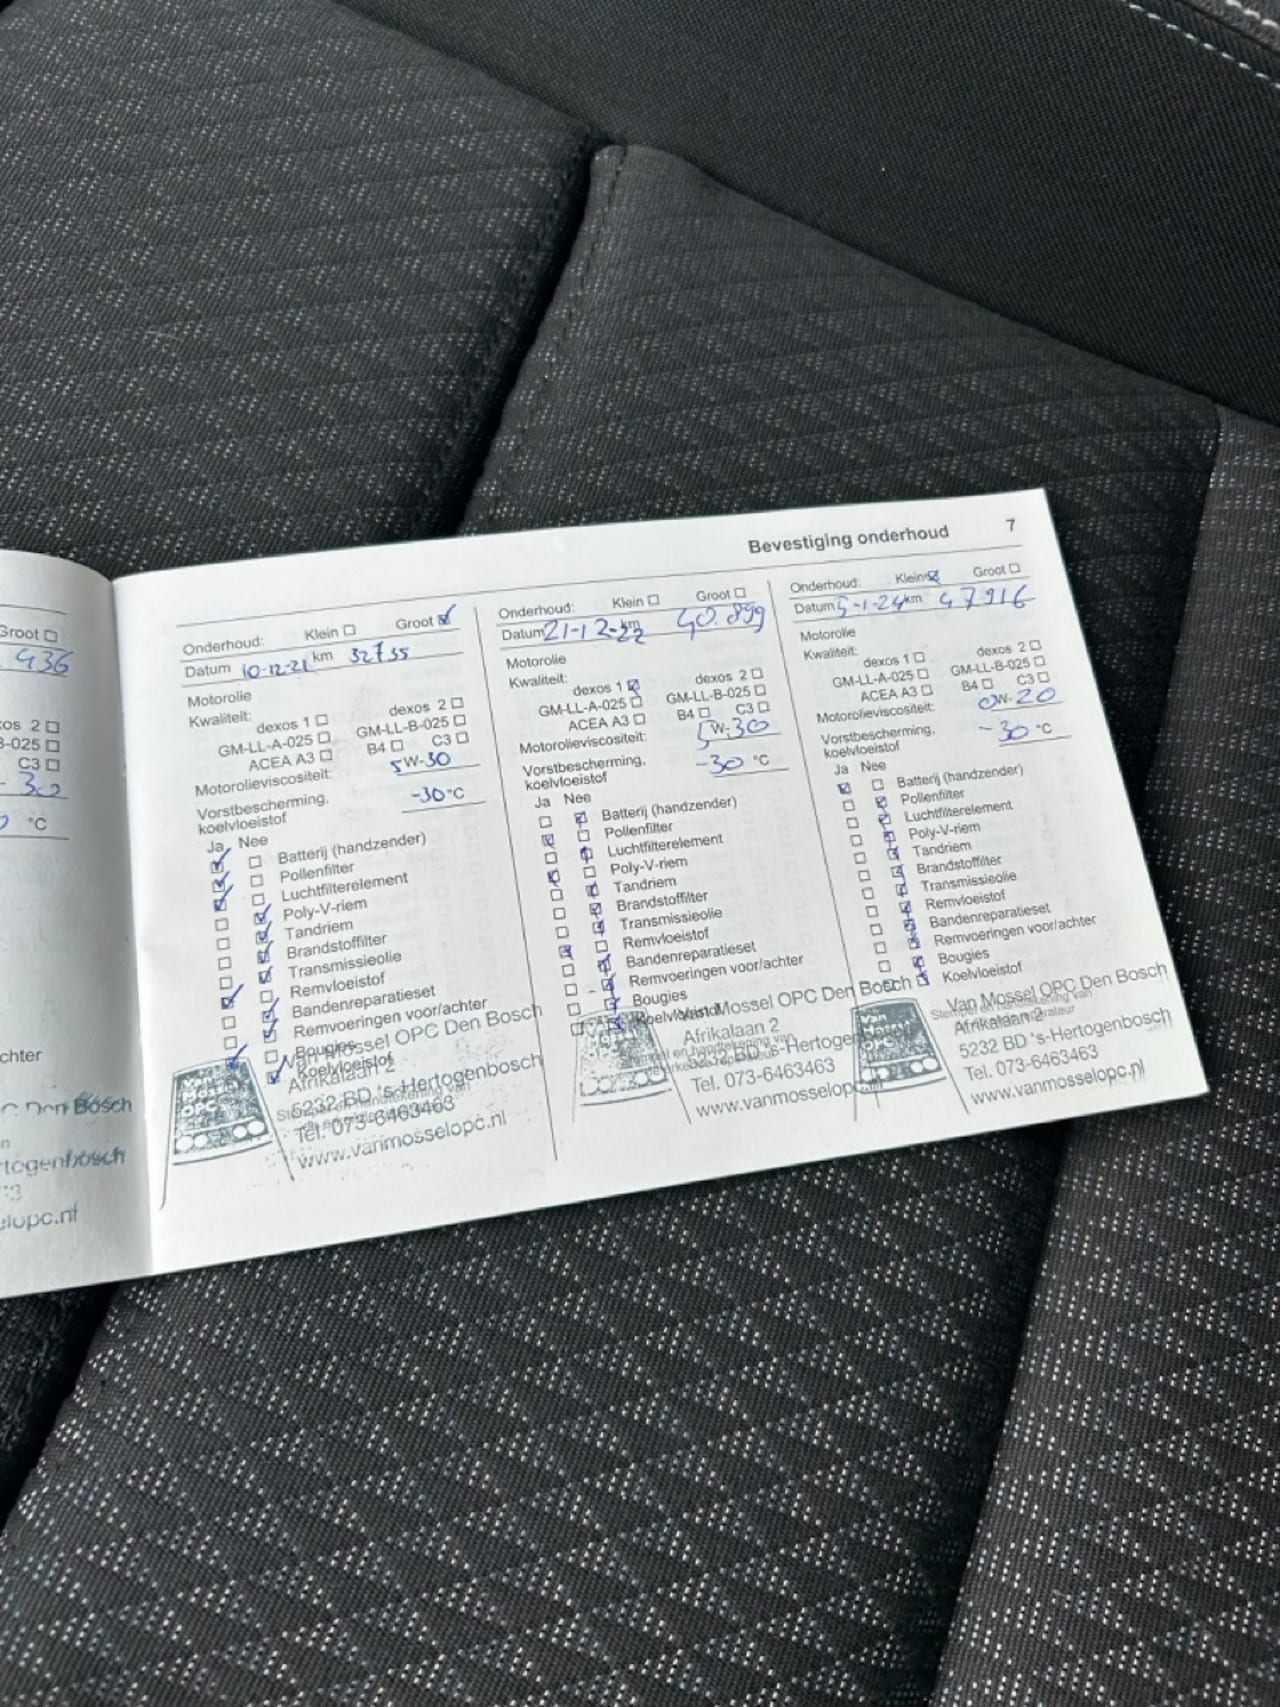 Groot ☐
436
os 2 ☐
B-025 ☐
C3 ☐
- 30
°C
chter
C Den Bosch
n
rtogenbosch
elopc.nl
Bevestiging onderhoud 7
Onderhoud: Klein ☐ Groot ☑
Datum 10-12-21 km 32735
Motorolie
Kwaliteit:
dexos 1 ☐ dexos 2 ☐
GM-LL-A-025 ☐ GM-LL-B-025 ☐
ACEA A3 ☐ B4 ☐ C3 ☐
Motorolieviscositeit: 5W-30
Vorstbescherming,
koelvloeistof -30 °C
Ja Nee
☑ ☐ Batterij (handzender)
☑ ☐ Pollenfilter
☑ ☐ Luchtfilterelement
☐ ☑ Poly-V-riem
☐ ☑ Tandriem
☐ ☑ Brandstoffilter
☐ ☑ Transmissieolie
☑ ☐ Remvloeistof
☐ ☑ Bandenreparatieset
☐ ☑ Remvoeringen voor/achter
☑ ☐ Bougies
☐ ☑ Koelvloeistof
Van Mossel OPC Den Bosch
Afrikalaan 2
5232 BD 's-Hertogenbosch
Tel. 073-6463463
www.vanmosselopc.nl
Onderhoud: Klein ☐ Groot ☐
Datum 21-12-22 km 40.899
Motorolie
Kwaliteit:
dexos 1 ☑ dexos 2 ☐
GM-LL-A-025 ☐ GM-LL-B-025 ☐
ACEA A3 ☐ B4 ☐ C3 ☐
Motorolieviscositeit: 5W-30
Vorstbescherming,
koelvloeistof -30 °C
Ja Nee
☐ ☑ Batterij (handzender)
☑ ☐ Pollenfilter
☐ ☑ Luchtfilterelement
☑ ☐ Poly-V-riem
☐ ☑ Tandriem
☐ ☑ Brandstoffilter
☐ ☑ Transmissieolie
☑ ☐ Remvloeistof
☐ ☑ Bandenreparatieset
☐ ☑ Remvoeringen voor/achter
☐ ☑ Bougies
☐ ☑ Koelvloeistof
Van Mossel OPC Den Bosch
Afrikalaan 2
5232 BD 's-Hertogenbosch
Tel. 073-6463463
www.vanmosselopc.nl
Onderhoud: Klein ☑ Groot ☐
Datum 5-1-24 km 47916
Motorolie
Kwaliteit:
dexos 1 ☐ dexos 2 ☐
GM-LL-A-025 ☐ GM-LL-B-025 ☐
ACEA A3 ☐ B4 ☐ C3 ☐
Motorolieviscositeit: 0W-20
Vorstbescherming,
koelvloeistof -30 °C
Ja Nee
☑ ☐ Batterij (handzender)
☐ ☑ Pollenfilter
☐ ☑ Luchtfilterelement
☐ ☑ Poly-V-riem
☐ ☑ Tandriem
☐ ☑ Brandstoffilter
☐ ☑ Transmissieolie
☐ ☑ Remvloeistof
☐ ☑ Bandenreparatieset
☐ ☑ Remvoeringen voor/achter
☐ ☑ Bougies
☐ ☑ Koelvloeistof
Van Mossel OPC Den Bosch
Stempel en handtekening van
Afrikalaan 2
5232 BD 's-Hertogenbosch
Tel. 073-6463463
www.vanmosselopc.nl